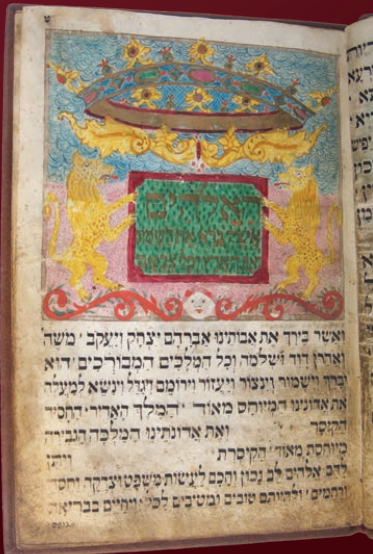 האלהים
אשר ברא את השמים
ואשר בירך את אבותינו אברהם יצחק ויעקב משה
ואהרן דוד ושלמה וכל המלכים המבורכים הוא
יברך וישמור וינצור ויעזור וירומם ויגדל וינשא למעלה
את אדונינו המיוחס מאוד המלך האדיר החסיד
הקיסר ואת אדונתינו המלכה הגבירה
מיוחסת מאוד הקיסרת ויתן
להם אלהים לב נכון וחכם לעשות משפט וצדקה וחסד
ורחמים ולהיותם טובים ומטיבים לכל ויחיים בבריאה